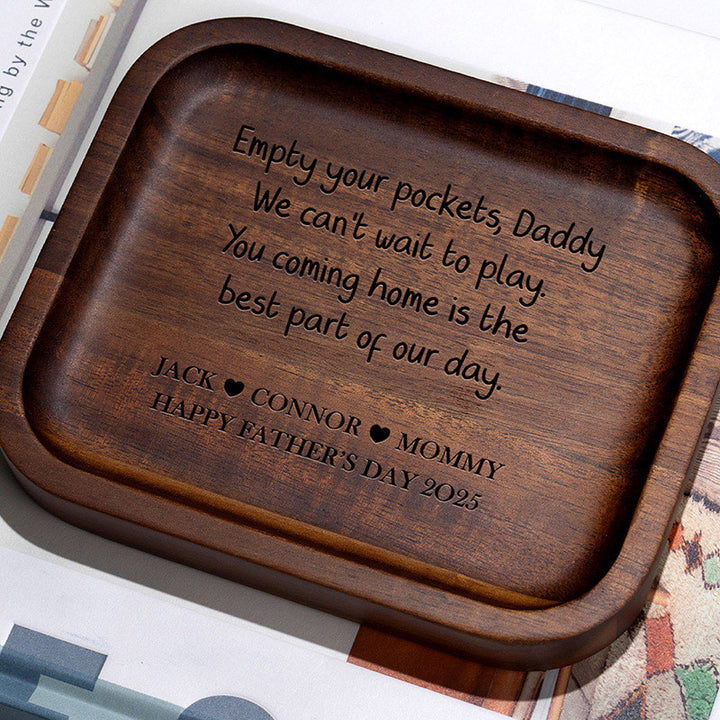 ng by the W
Empty your pockets, Daddy
We can't wait to play.
You coming home is the
best part of our day.
JACK ♥ CONNOR ♥ MOMMY
HAPPY FATHER'S DAY 2025